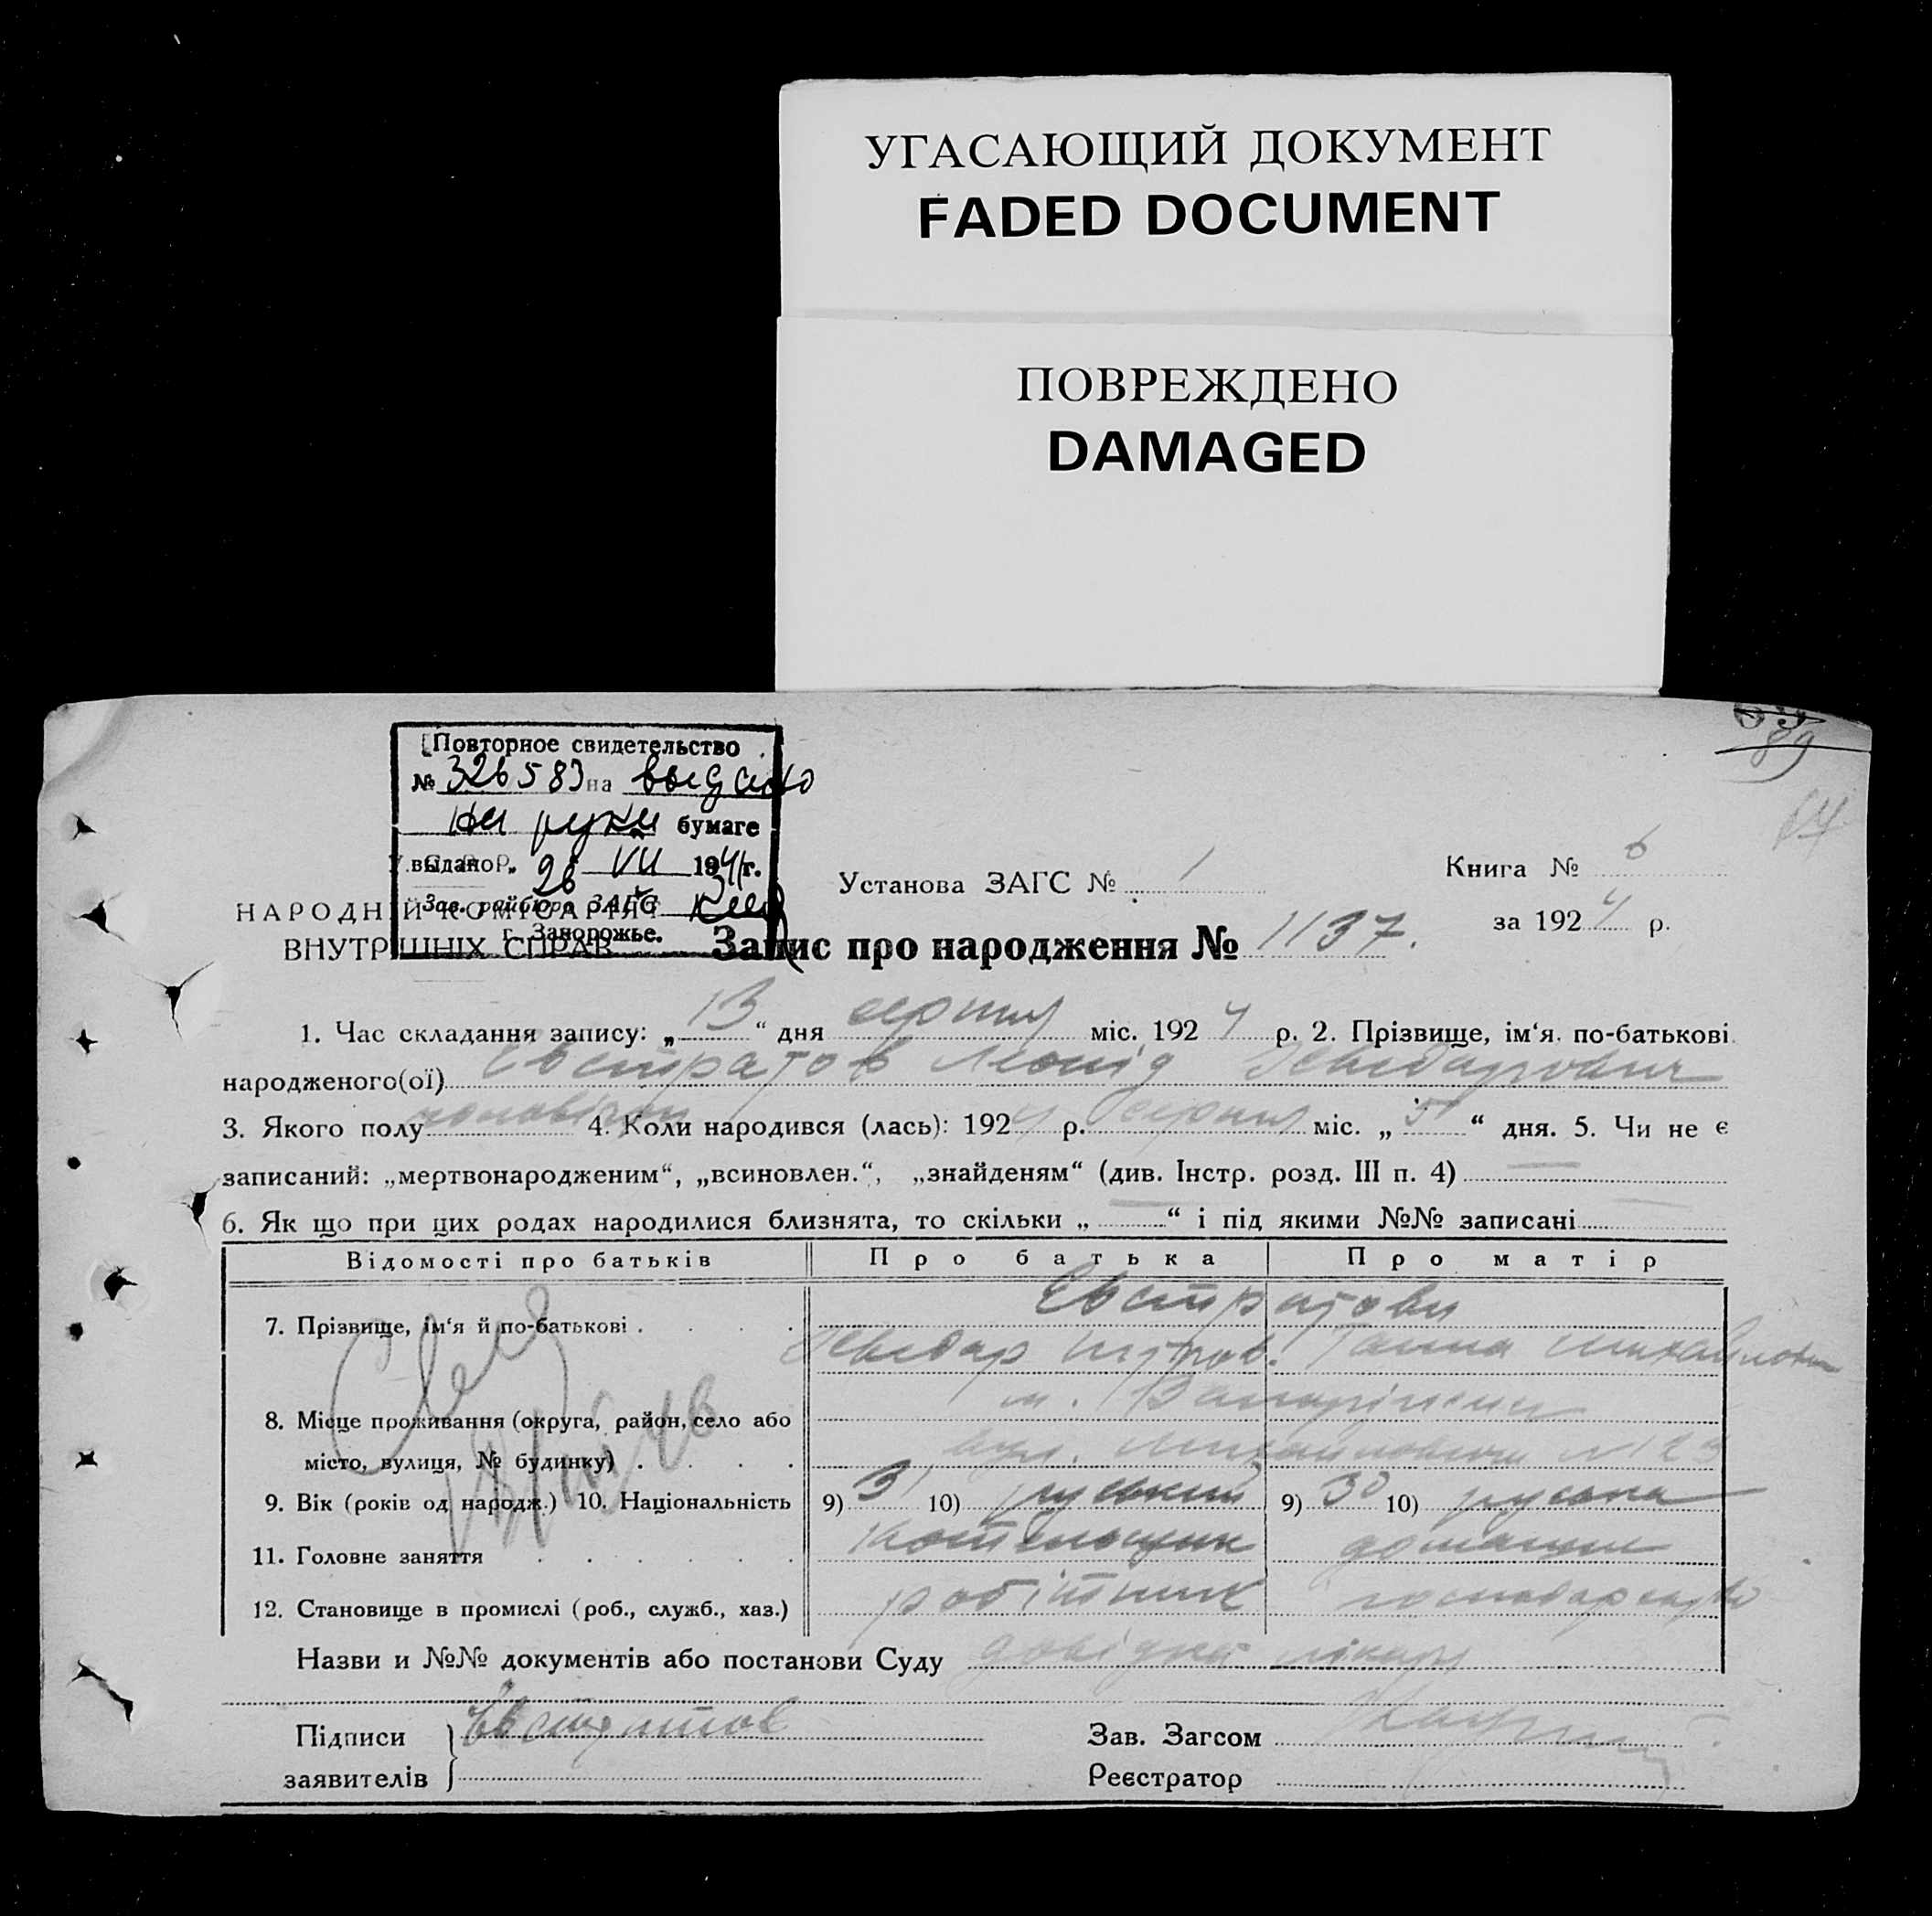 УГАСАЮЩИЙ ДОКУМЕНТ
FADED DOCUMENT
ПОВРЕЖДЕНО
DAMAGED
89
64
Повторное свидетельство
№ 326583 на выдано
на руки бумаге
выдано „ 26 VII 1941 г.
Зав. райбюро ЗАГС
г. Запорожье.
НАРОДНІЙ КОМІСАРІЯТ
ВНУТРІШНІХ СПРАВ
Установа ЗАГС № 1
Книга № 6
за 1924 р.
Запис про народження № 1137.
1. Час складання запису: „ 13 “ дня серпня міс. 1924 р. 2. Прізвище, ім‘я. по-батькові
народженого(ої) Євстратов Леонід
3. Якого полу чоловічого 4. Коли народився (лась): 1924 р. серпня міс. „ 5 “ дня. 5. Чи не є
записаний: „мертвонародженим“, „всиновлен.“, „знайденям“ (див. Інстр. розд. III п. 4)
6. Як що при цих родах народилися близнята, то скільки „ “ і під якими №№ записані
Відомості про батьків
Про батька
Про матір
7. Прізвище, ім‘я й по-батькові
Євстратови
Ганна
8. Місце проживання (округа, район, село або
місто, вулиця, № будинку)
м. Запоріжжя
вул. № 123
9. Вік (років од народж.) 10. Національність
9) 31 10) руський
9) 30 10) руська
11. Головне заняття
котельщик
домашнє
12. Становище в промислі (роб., служб., хаз.)
робітник
господарство
Назви и №№ документів або постанови Суду довідка лікаря
Підписи
заявителів
Евстратов
Зав. Загсом
Реєстратор